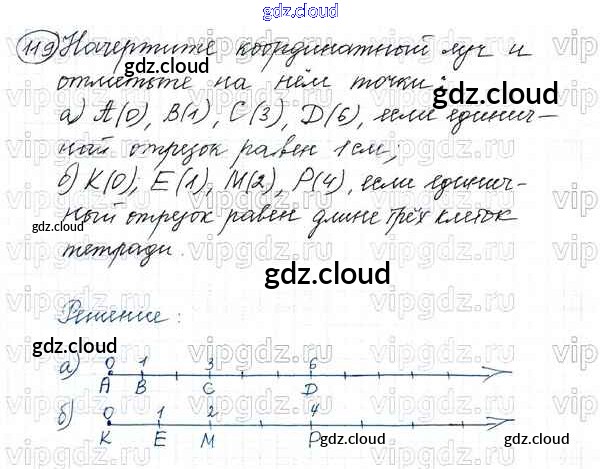 gdz.cloud
119 Начертите координатный луч и
gdz.cloud
отметьте на нём точки:
gdz.cloud
а) A(0), B(1), C(3), D(6), если единич-
ный отрезок равен 1 см;
б) K(0), E(1), M(2), P(4), если единич-
ный отрезок равен длине трёх клеток
gdz.cloud
тетради.
gdz.cloud
Решение:
vipgdz.ru
gdz.cloud
а) 0 1 3 6
A B C D
б) 0 1 2 4
K E M P
gdz.cloud
gdz.cloud